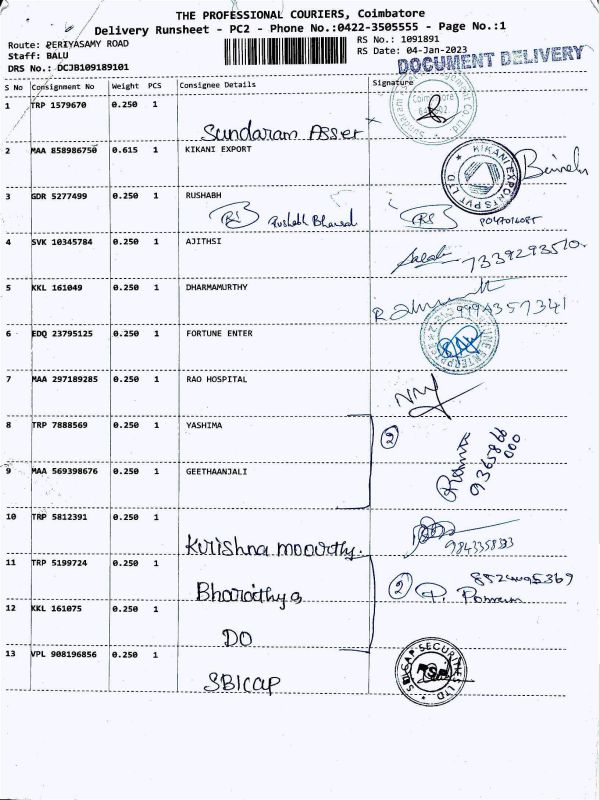 THE PROFESSIONAL COURIERS, Coimbatore
Delivery Runsheet - PC2 - Phone No.:0422-3505555 - Page No.:1
Route: PERIYASAMY ROAD
Staff: BALU
DRS No.: DCJB109189101
RS No.: 1091891
RS Date: 04-Jan-2023
DOCUMENT DELIVERY
S No Consignment No Weight PCS Consignee Details Signature
1 TRP 1579670 0.250 1
Sundaram Asset
2 MAA 858986750 0.615 1 KIKANI EXPORT
KIKANI EXPORTS PVT LTD
3 GDR 5277499 0.250 1 RUSHABH
Rushabh Bhansal
4 SVK 10345784 0.250 1 AJITHSI
7339293570
5 KKL 161049 0.250 1 DHARMAMURTHY
9994357341
6 EDQ 23795125 0.250 1 FORTUNE ENTER
7 MAA 297189285 0.250 1 RAO HOSPITAL
8 TRP 7888569 0.250 1 YASHIMA
9365866
000
9 MAA 569398676 0.250 1 GEETHAANJALI
10 TRP 5812391 0.250 1
Krishna moorthy.
11 TRP 5199724 0.250 1
Bharathy
2
12 KKL 161075 0.250 1
DO
13 VPL 908196856 0.250 1
SBICAP
SBICAP SECURITIES LTD